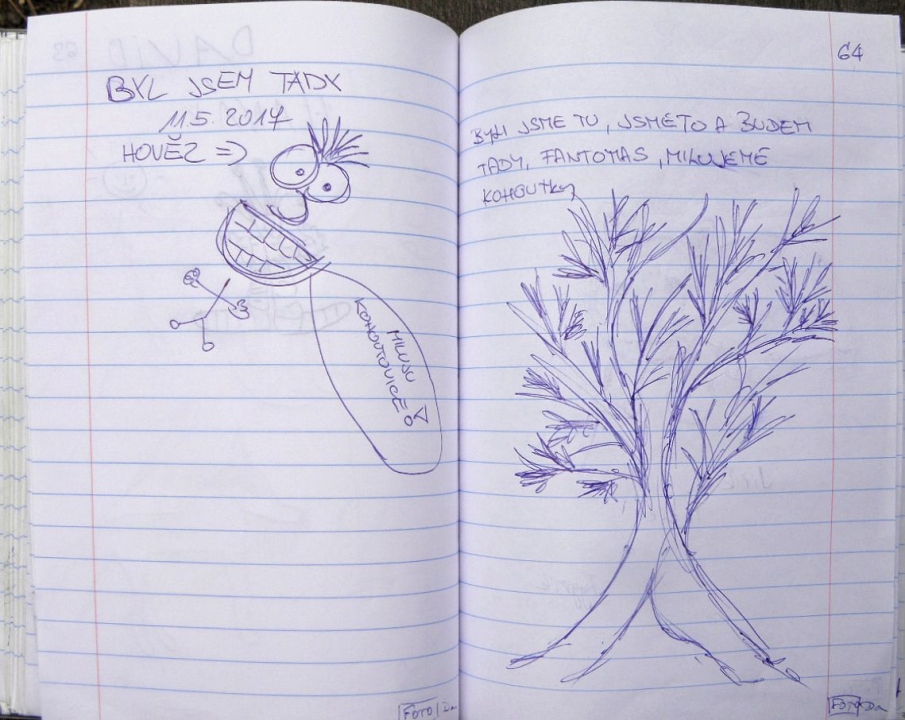 BYL JSEM TADY
11.5.2017
HOVĚZ =>
MILUJU
KOHOUTOVICE!
64
BYLI JSME TU, JSME TO A BUDEM
TADY, FANTOMAS, MILUJEME
KOHOUTKY
FOTO
FOTO